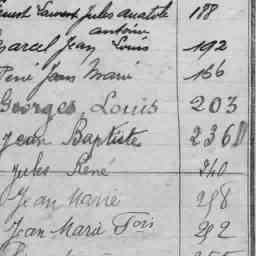 Ernest Laurent Jules Anatole 188
Antoine
Marcel Jean Louis 192
René Jean Marie 156
Georges Louis 203
Jean Baptiste 236
Jules René 240
Jean Marie 258
Jean Marie Fois 292